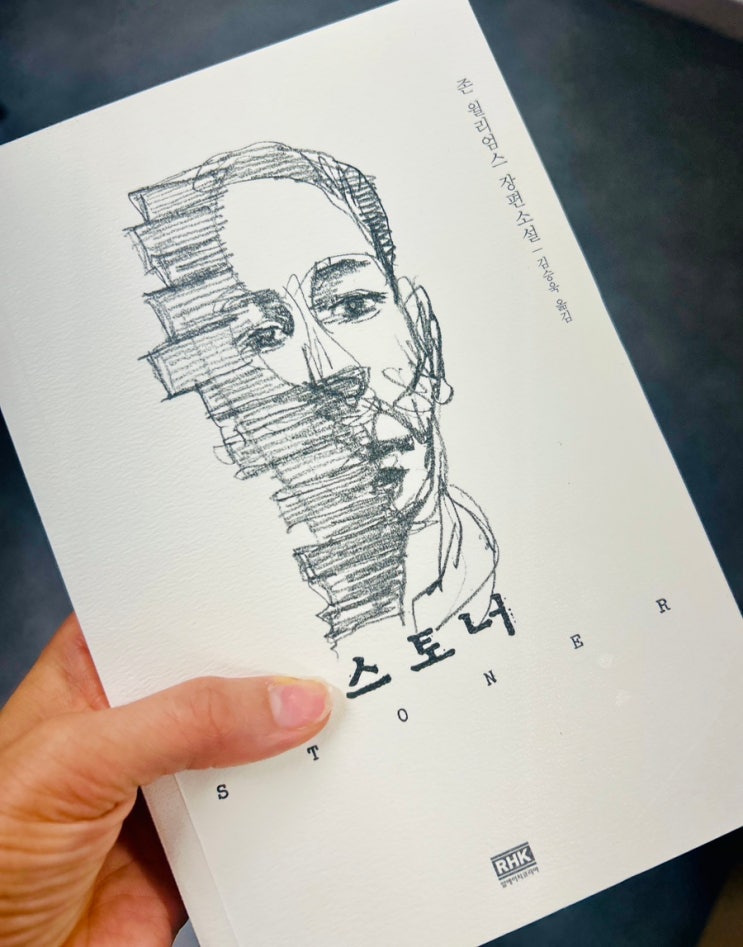 존 윌리엄스 장편소설 | 김승욱 옮김
스토너
STONER
RHK
알에이치코리아